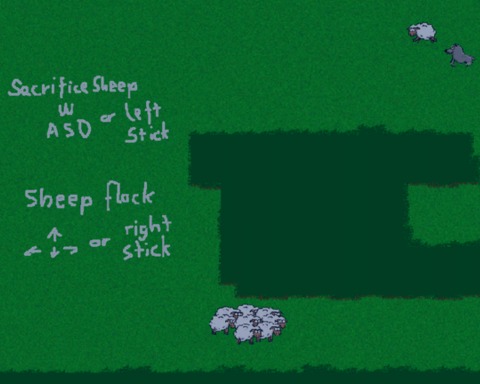 Sacrifice Sheep
W
ASD or left
Stick
Sheep flock
↑
← ↓ → or right
stick